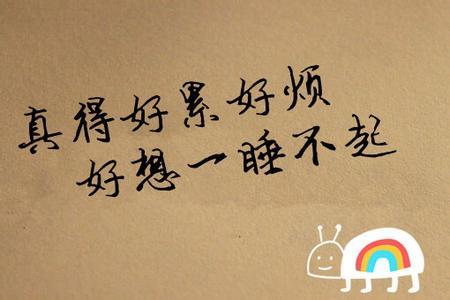 真得好累好烦
好想一睡不起